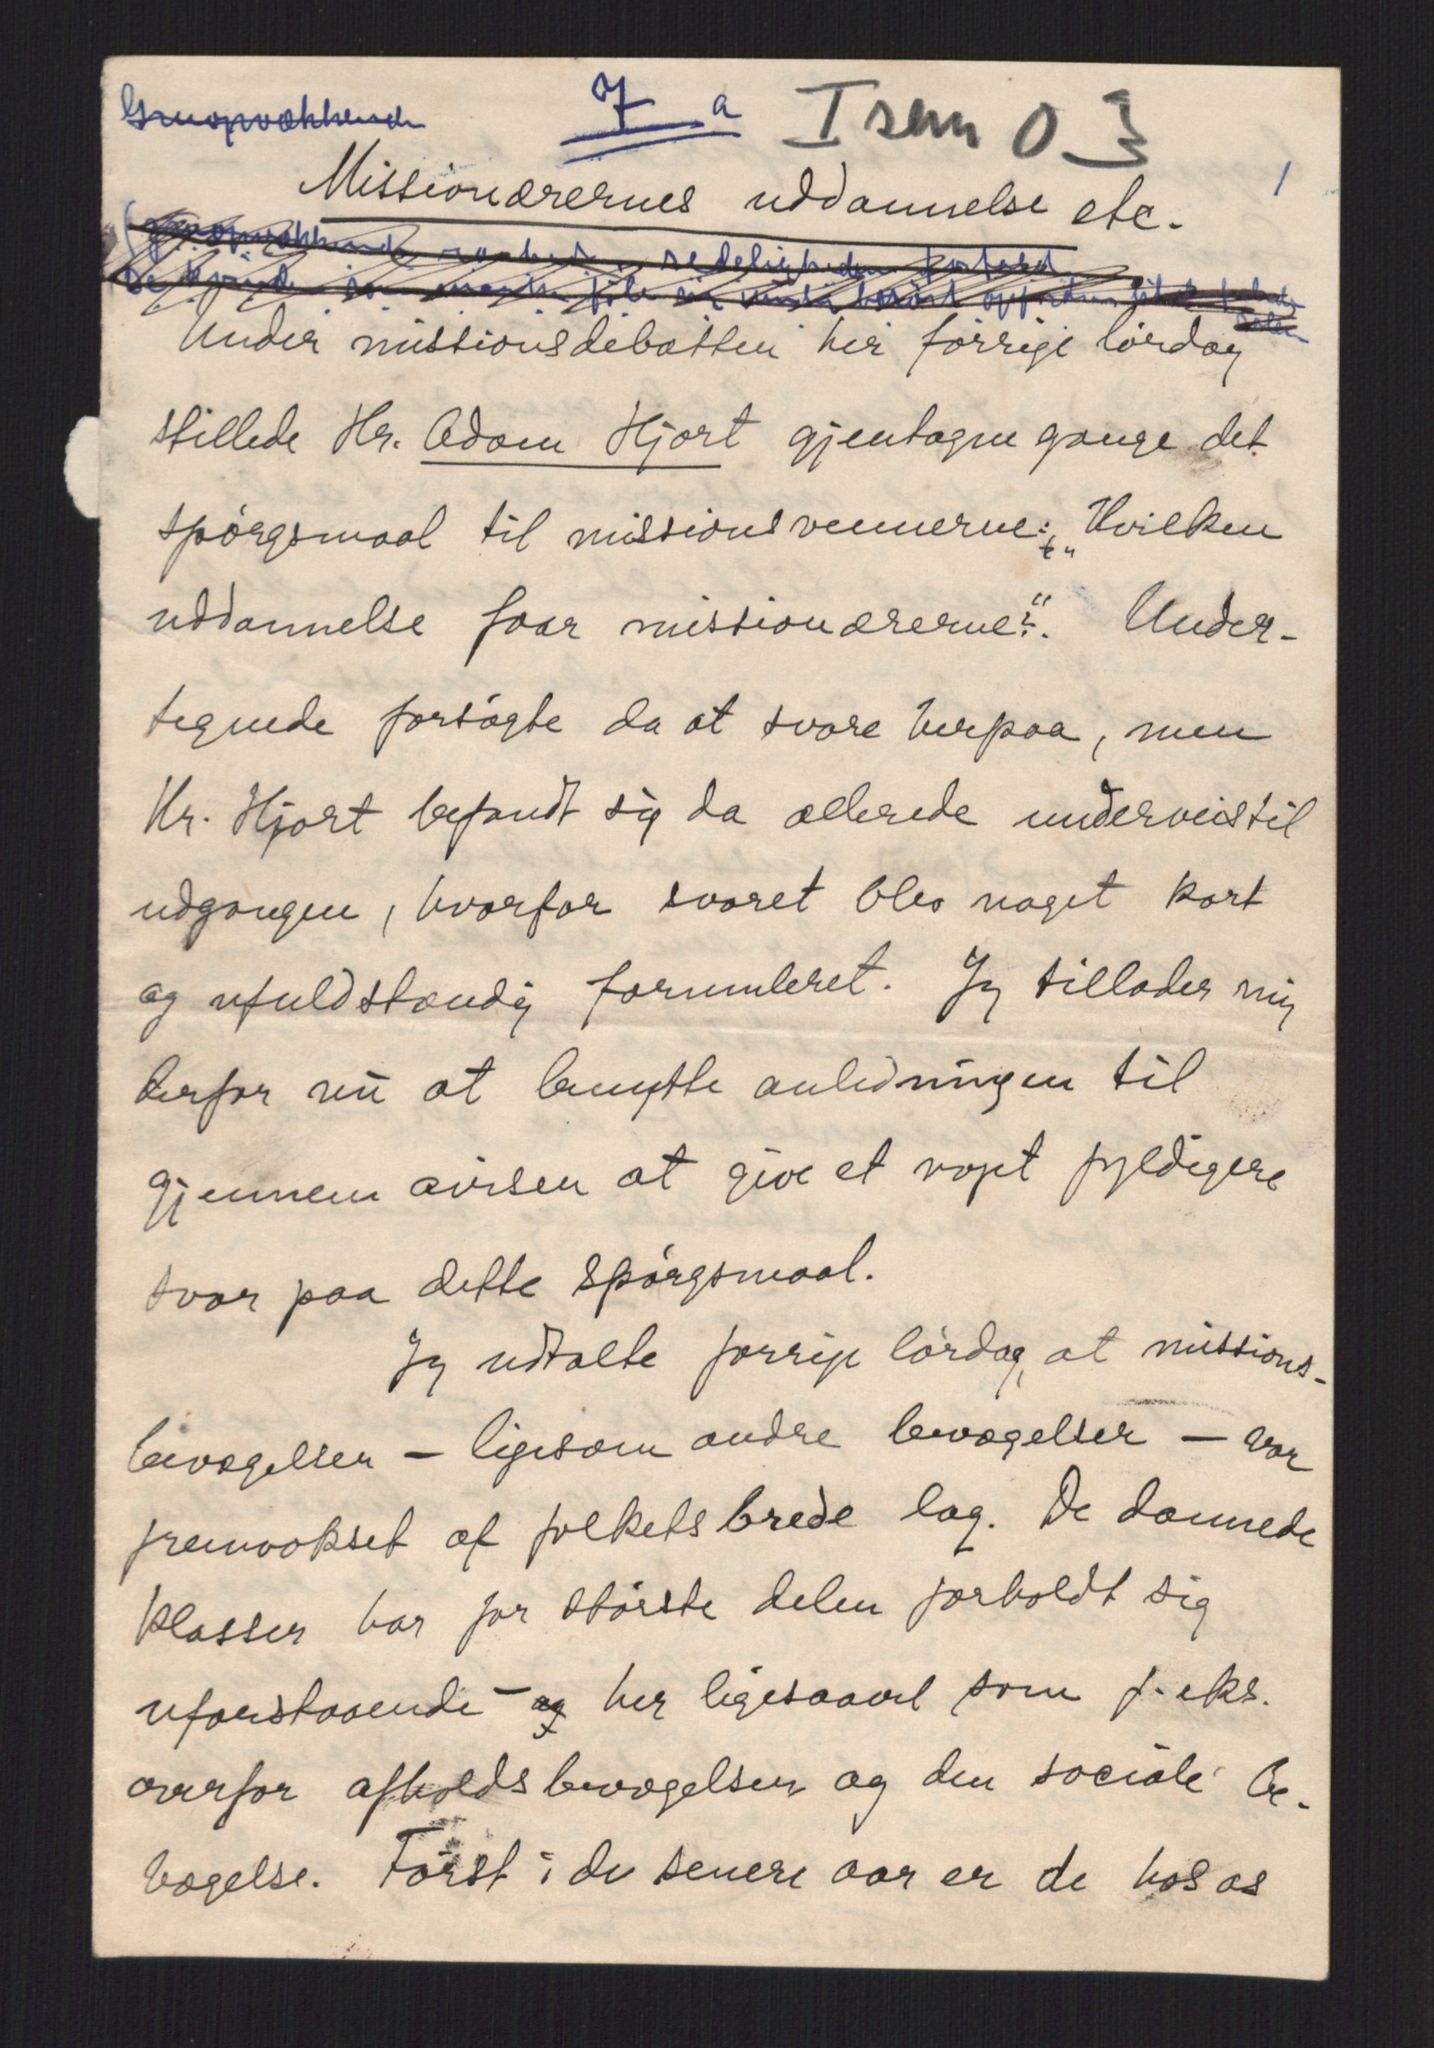 Gruopvækkende
7 a I sem 0 3
1
Missionærernes uddannelse etc.
Under missionsdebatten her forrige lørdag
stillede Hr. Adam Hjort gjentagne gange det
spørgsmaal til missionsvennerne: „Hvilken
uddannelse faar missionærerne?“. Under-
tegnede forsøgte da at svare herpaa, men
Hr. Hjort befandt sig da allerede underveis til
udgangen, hvorfor svaret blev noget kort
og ufuldstændig formuleret. Jeg tillader mig
derfor nu at benytte anledningen til
gjennem avisen at give et noget fyldigere
svar paa dette spørgsmaal.
Jeg udtalte forrige lørdag, at missions-
bevægelsen – ligesom andre bevægelser – var
fremvokset af folkets brede lag. De dannede
klasser har for største delen forholdt sig
uforstaaende – og her ligesaavel som f. eks.
overfor afholdsbevægelsen og den sociale be-
vægelse. Først i de senere aar er de hos os